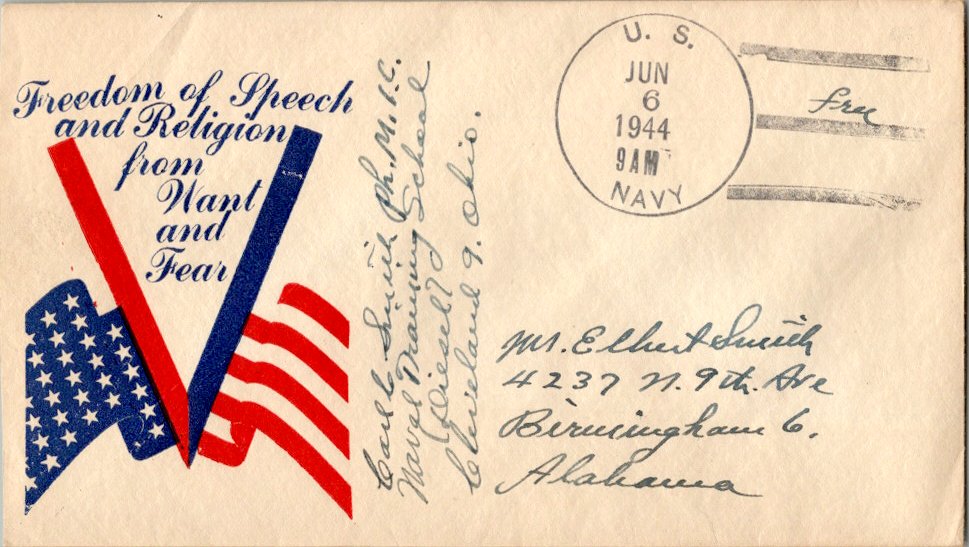 Freedom of Speech
and Religion
from
Want
and
Fear
Smith Ph. M. 1C.
Naval Training School
(Diesel)
Cleveland 9. Ohio.
U. S.
JUN
6
1944
9 AM
NAVY
Free
Mr. Elbert Smith
4237 N. 9th Ave
Birmingham 6.
Alabama